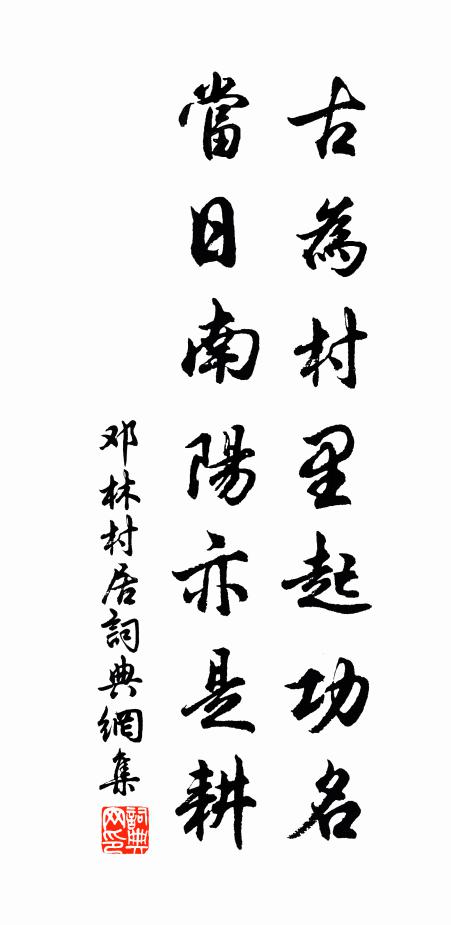 古為村里起功名
當日南陽亦是耕
邓林村居詞典網集
詞典網印